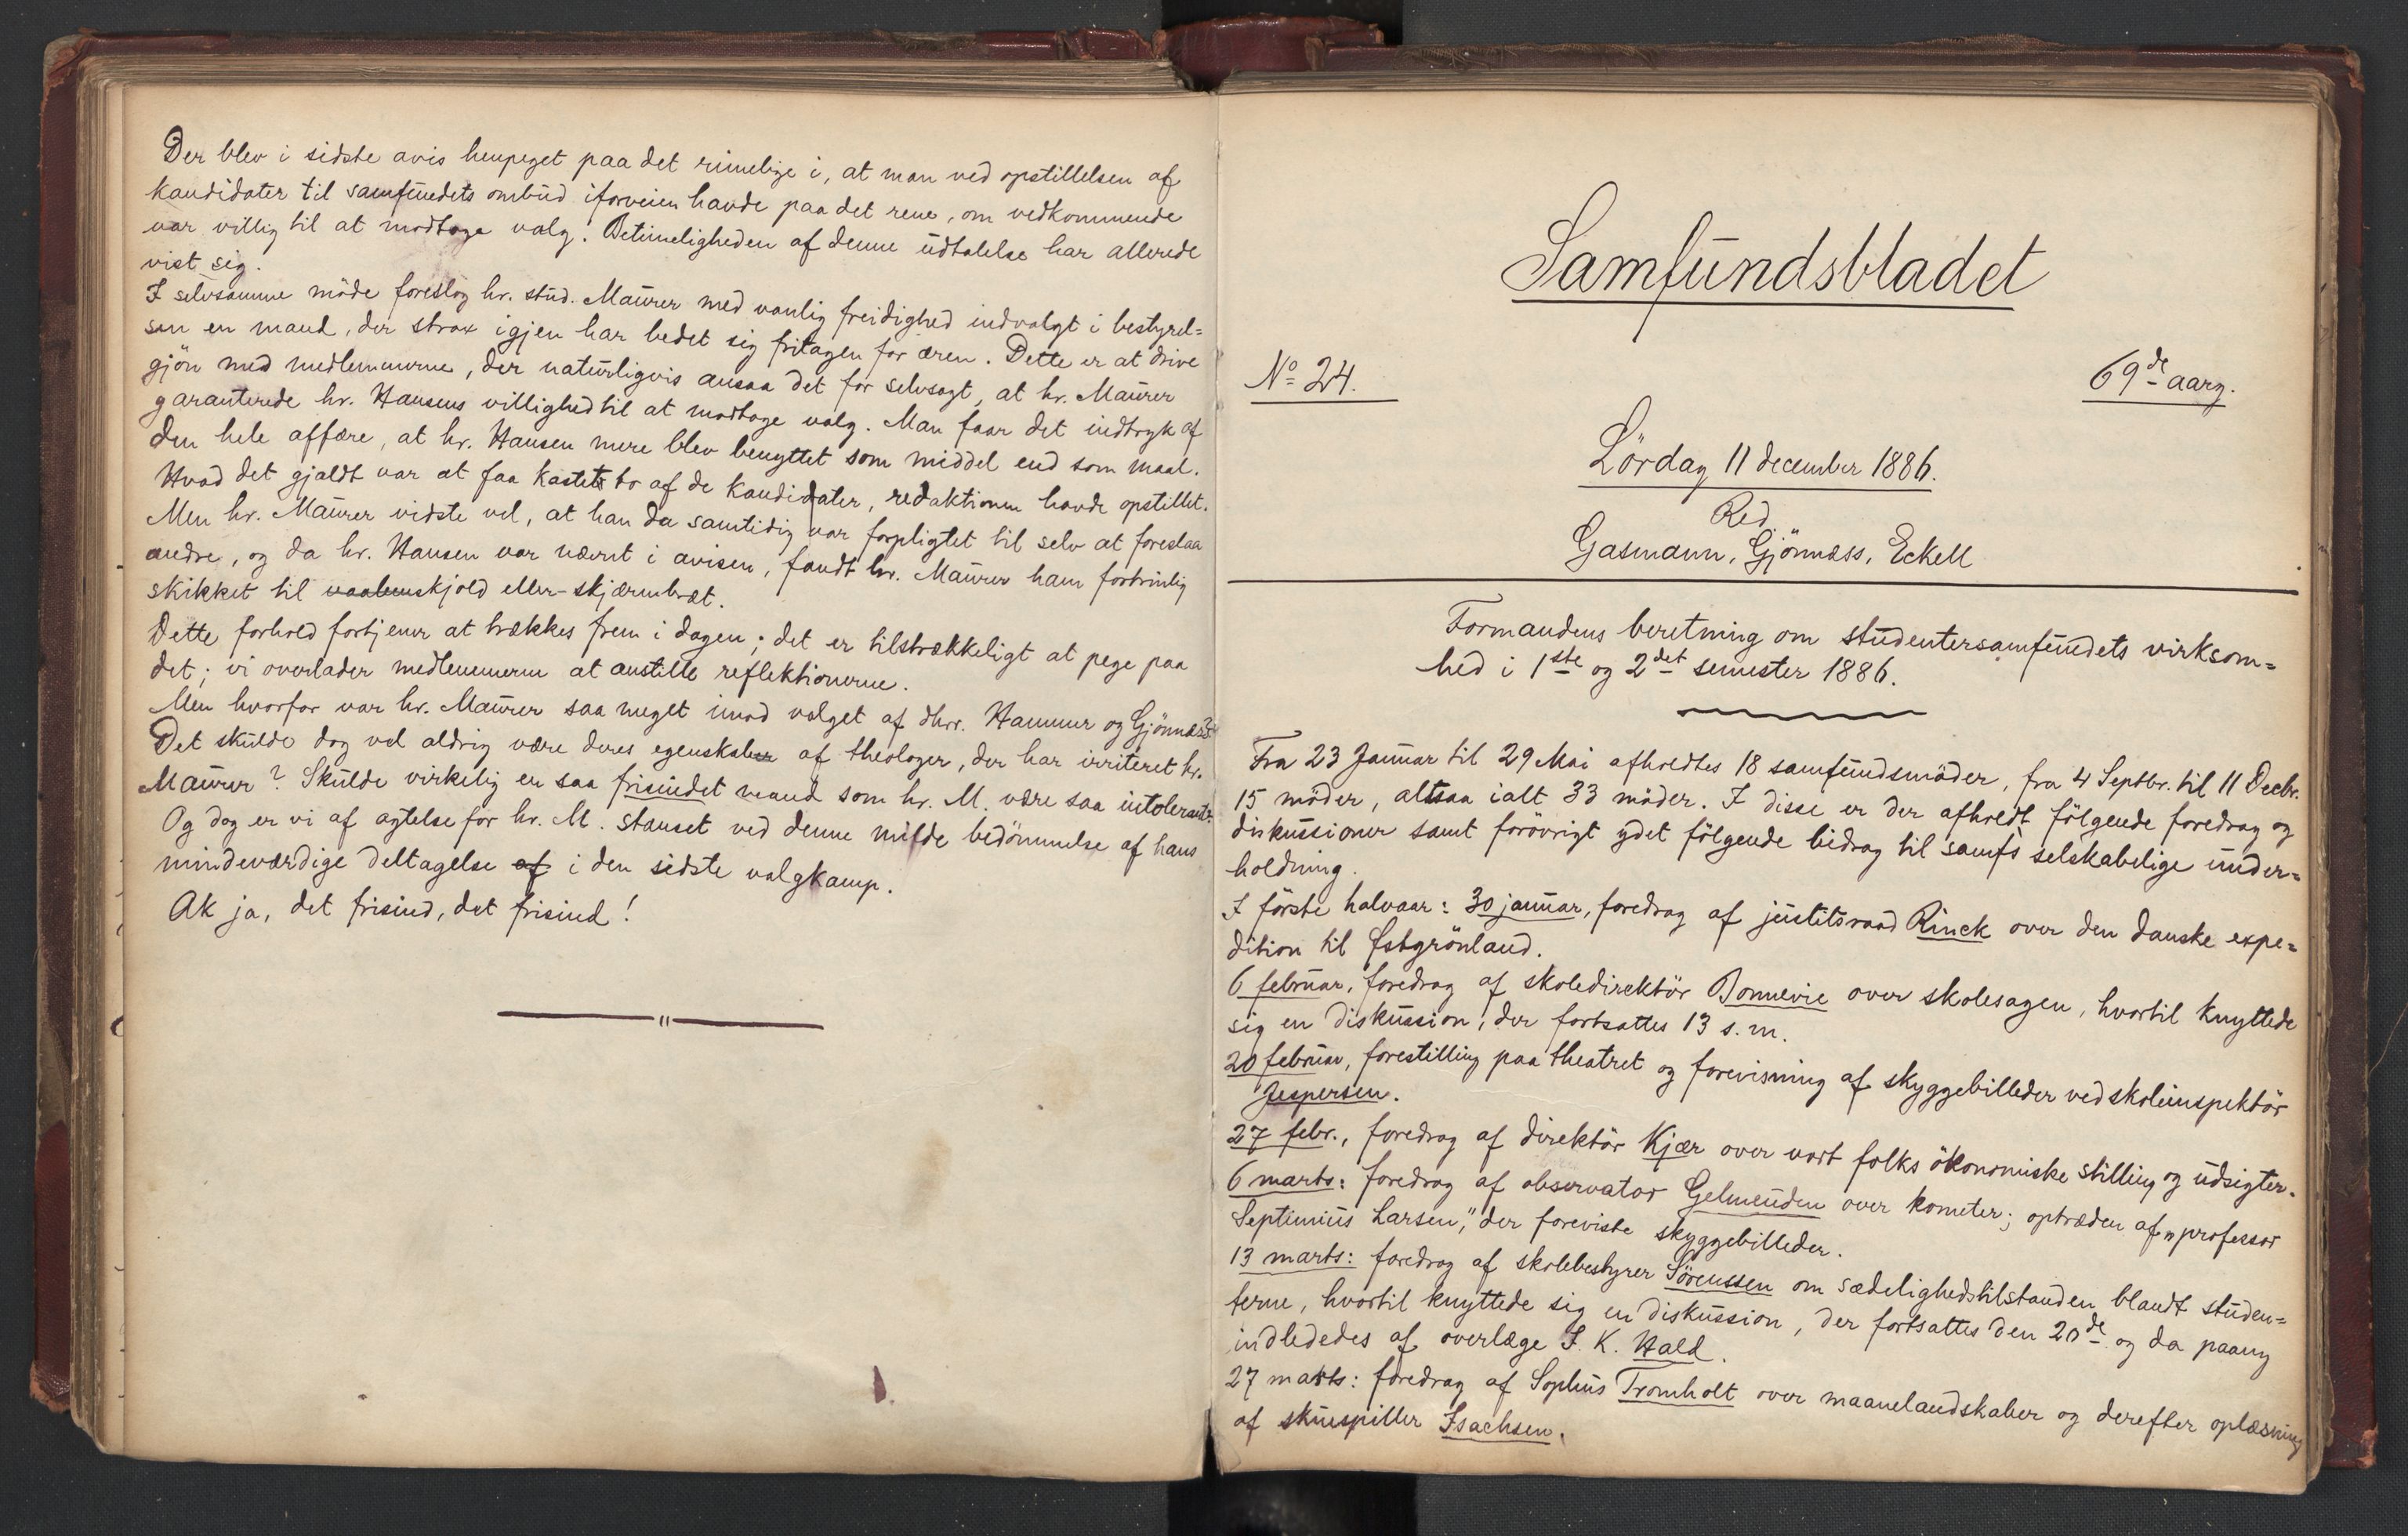 Der blev i sidste avis henpeget paa det rimelige i, at man ved opstillelsen af
kandidater til samfundets ombud iforveien havde paa det rene, om vedkommende
var villig til at modtage valg. Betimeligheden af denne udtalelse har allerede
vist sig.
I selvsamme möde foreslog hr. stud. Maurer med vanlig freidighed indvalgt i bestyrel=
sen en mand, der strax igjen har bedet sig fritagen for æren. Dette er at drive
gjön med medlemmerne, der naturligvis ansaa det for selvsagt, at hr. Maurer
garanterede hr. Hansens villighed til at modtage valg. Man faar det indtryk af
den hele affære, at hr. Hansen mere blev benyttet som middel end som maal.
Hvad det gjaldt var at faa kastet to af de kandidater, redaktionen havde opstillet.
Men hr. Maurer vidste vel, at han da samtidig var forpligtet til selv at foreslaa
andre, og da hr. Hansen var nævnt i avisen, fandt hr. Maurer ham fortrinlig
skikket til vaabenskjold eller skjærmbræt.
Dette forhold fortjener at trækkes frem i dagen; det er tilstrækkeligt at pege paa
det; vi overlader medlemmerne at anstille reflektionerne.
Men hvorfor var hr. Maurer saa meget imod valget af dhrr. Hammer og Gjönnæss?
Det skulde dog vel aldrig være deres egenskaber af theologer, der har irriteret hr.
Maurer? Skulde virkelig en saa frisindet mand som hr. M. være saa intolerant?
Og dog er vi af agtelse for hr. M. stanset ved denne milde bedömmelse af hans
mindeværdige deltagelse af i den sidste valgkamp.
Ak ja, det frisind, det frisind!
Samfundsbladet
No 24.
69de aarg.
Lördag 11 december 1886.
Red.
Gasmann, Gjönnæss, Eckell
Formandens beretning om studentersamfundets virksom=
hed i 1ste og 2det semester 1886.
Fra 23 Januar til 29 Mai afholdtes 18 samfundsmöder, fra 4 Septbr. til 11 Decbr.
15 möder, altsaa ialt 33 möder. I disse er der afholdt fölgende foredrag og
diskussioner samt forövrigt ydet fölgende bidrag til samfs selskabelige under=
holdning.
I förste halvaar: 30 januar, foredrag af justitsraad Rinck over den danske expe=
dition til Østgrönland.
6 februar, foredrag af skoledirektör Bonnevie over skolesagen, hvortil knyttede
sig en diskussion, der fortsattes 13 s. m.
20 februar, forestilling paa theatret og forevisning af skyggebilleder ved skoleinspektör
Jespersen.
27 febr., foredrag af direktör Kjær over vort folks ökonomiske stilling og udsigter.
6 marts: foredrag af observator Gelmuiden over kometer; optræden af „professor
Septimius Larsen," der foreviste skyggebilleder.
13 marts: foredrag af skolebestyrer Sörenssen om sædelighedstilstanden blandt studen=
terne, hvortil knyttede sig en diskussion, der fortsattes den 20de og da paany
indlededes af overlæge I. K. Hald.
27 marts: foredrag af Sophus Tromholt over maanelandskaber og derefter oplæsning
af skuespiller Isachsen.